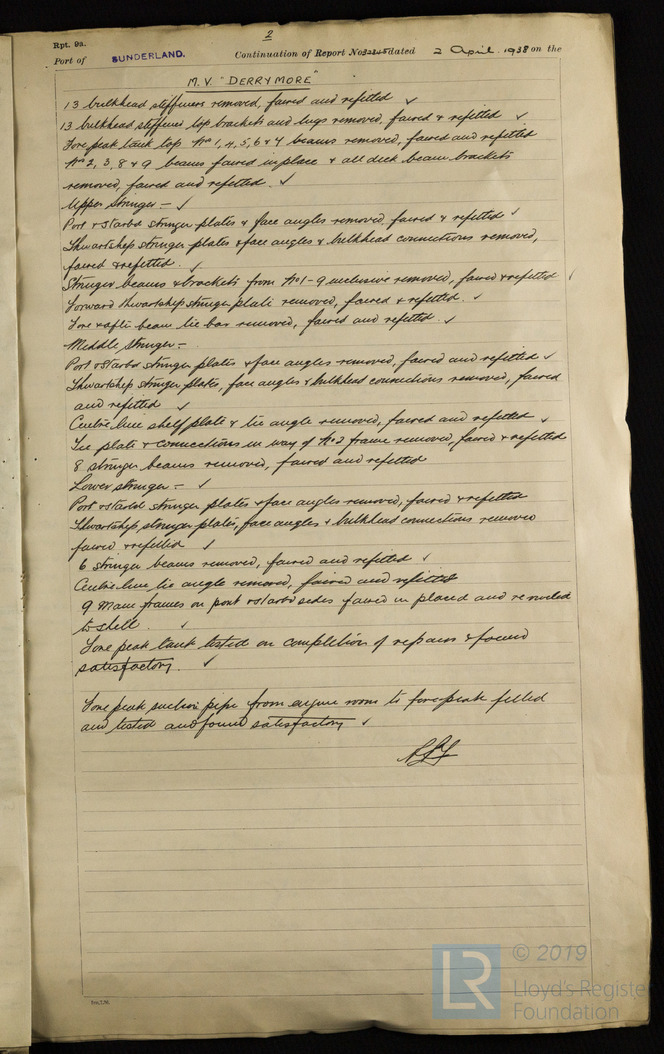 2
Rpt. 9a.
Port of SUNDERLAND. Continuation of Report No. dated 2 April 1938 on the
M.V. "DERRYMORE"
13 bulkhead stiffeners removed, faired and refitted ✓
13 bulkhead stiffener top brackets and lugs removed, faired & refitted ✓
Fore peak tank top Nos 1, 4, 5, 6 & 7 beams removed, faired and refitted
Nos 2, 3, 8 & 9 beams faired in place & all deck beam brackets
removed, faired and refitted. ✓
Upper stringer – ✓
Port & starbd stringer plates & face angles removed, faired & refitted ✓
Thwartship stringer plates & face angles & bulkhead connections removed,
faired & refitted. ✓
Stringer beams & brackets from No 1-9 inclusive removed, faired & refitted ✓
Forward thwartship stringer plate removed, faired & refitted. ✓
Fore & aft beam tie bar removed, faired and refitted ✓
Middle stringer –
Port & starbd stringer plates & face angles removed, faired and refitted ✓
Thwartship stringer plates, face angles & bulkhead connections removed, faired
and refitted ✓
Centre line shelf plate & tie angle removed, faired and refitted ✓
Tie plate & connections in way of No 2 frame removed, faired & refitted
8 stringer beams removed, faired and refitted
Lower stringer – ✓
Port & starbd stringer plates & face angles removed, faired & refitted
Thwartship stringer plates, face angles & bulkhead connections removed
faired & refitted ✓
6 stringer beams removed, faired and refitted ✓
Centre line tie angle removed, faired and refitted
9 Main frames on port & starbd sides faired in placed and reriveted
to shell. ✓
Fore peak tank tested on completion of repairs & found
satisfactory. ✓
Fore peak suction pipe from engine room to fore peak fitted
and tested and found satisfactory ✓
© 2019
LR
Lloyd's Register
Foundation